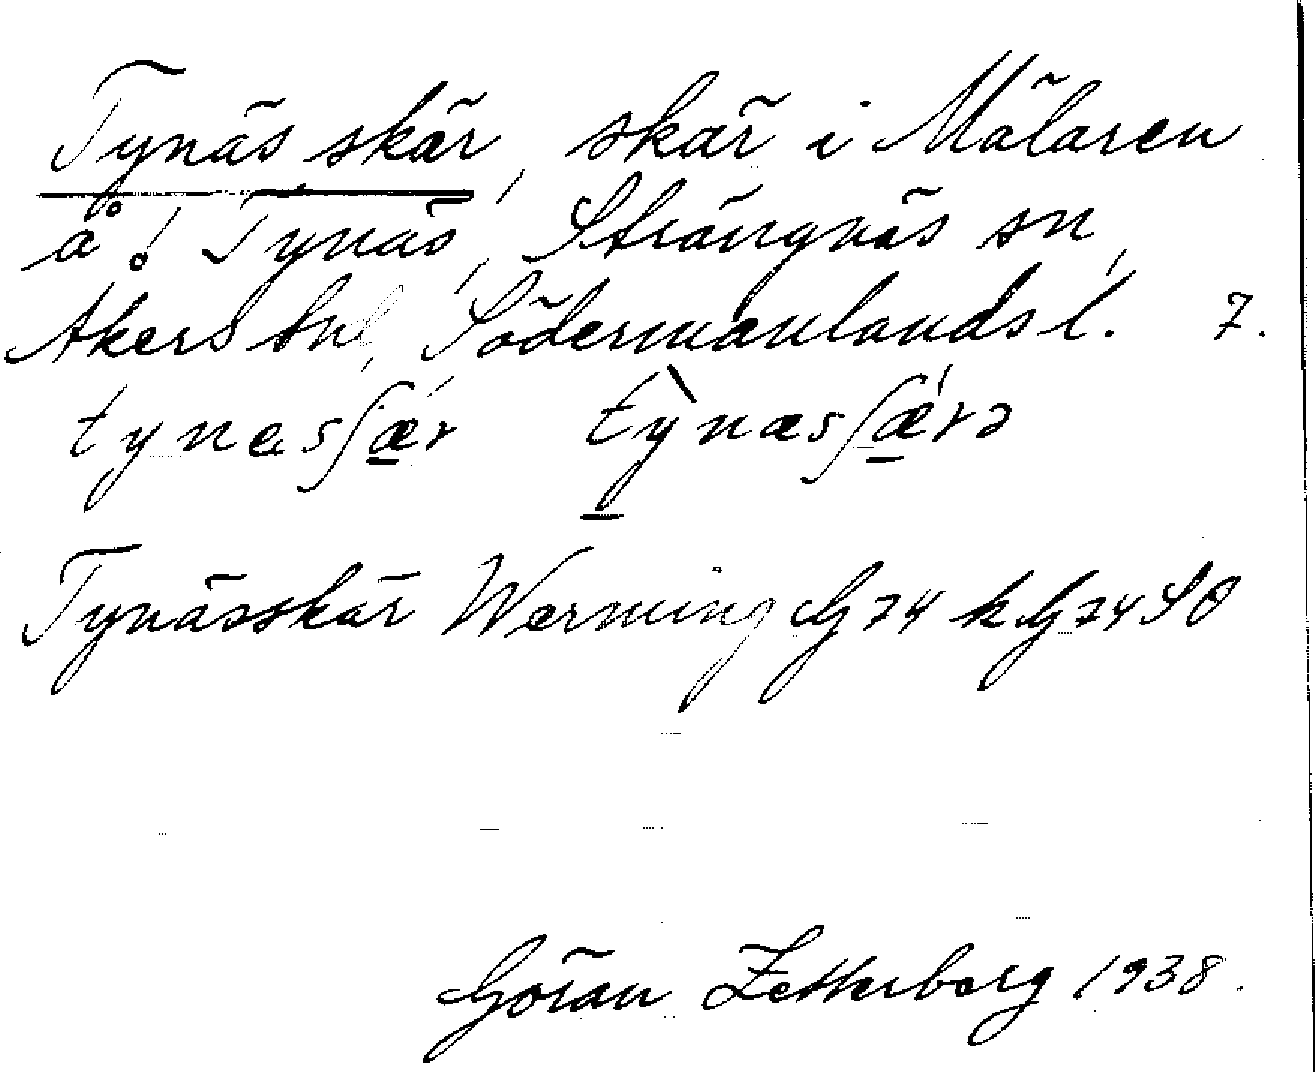 Tynäs skär, skär i Mälaren
å! Tynäs, Strängnäs sn,
Åkers hd, Södermanlands l. 7.
tynesʃær tỳnæsʃæ̀rə
Tynässkär Werming G 74 k G 74 SO
Göran Zetterberg 1938.